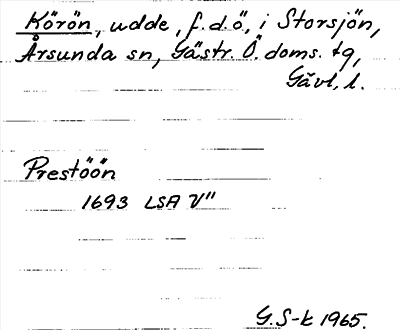 Körön, udde, f.d.ö, i Storsjön,
Årsunda sn, Gästr. Ö. doms. tg,
Gävl. l.
Prestöön
1693 LSA V"
G.S-k 1965.